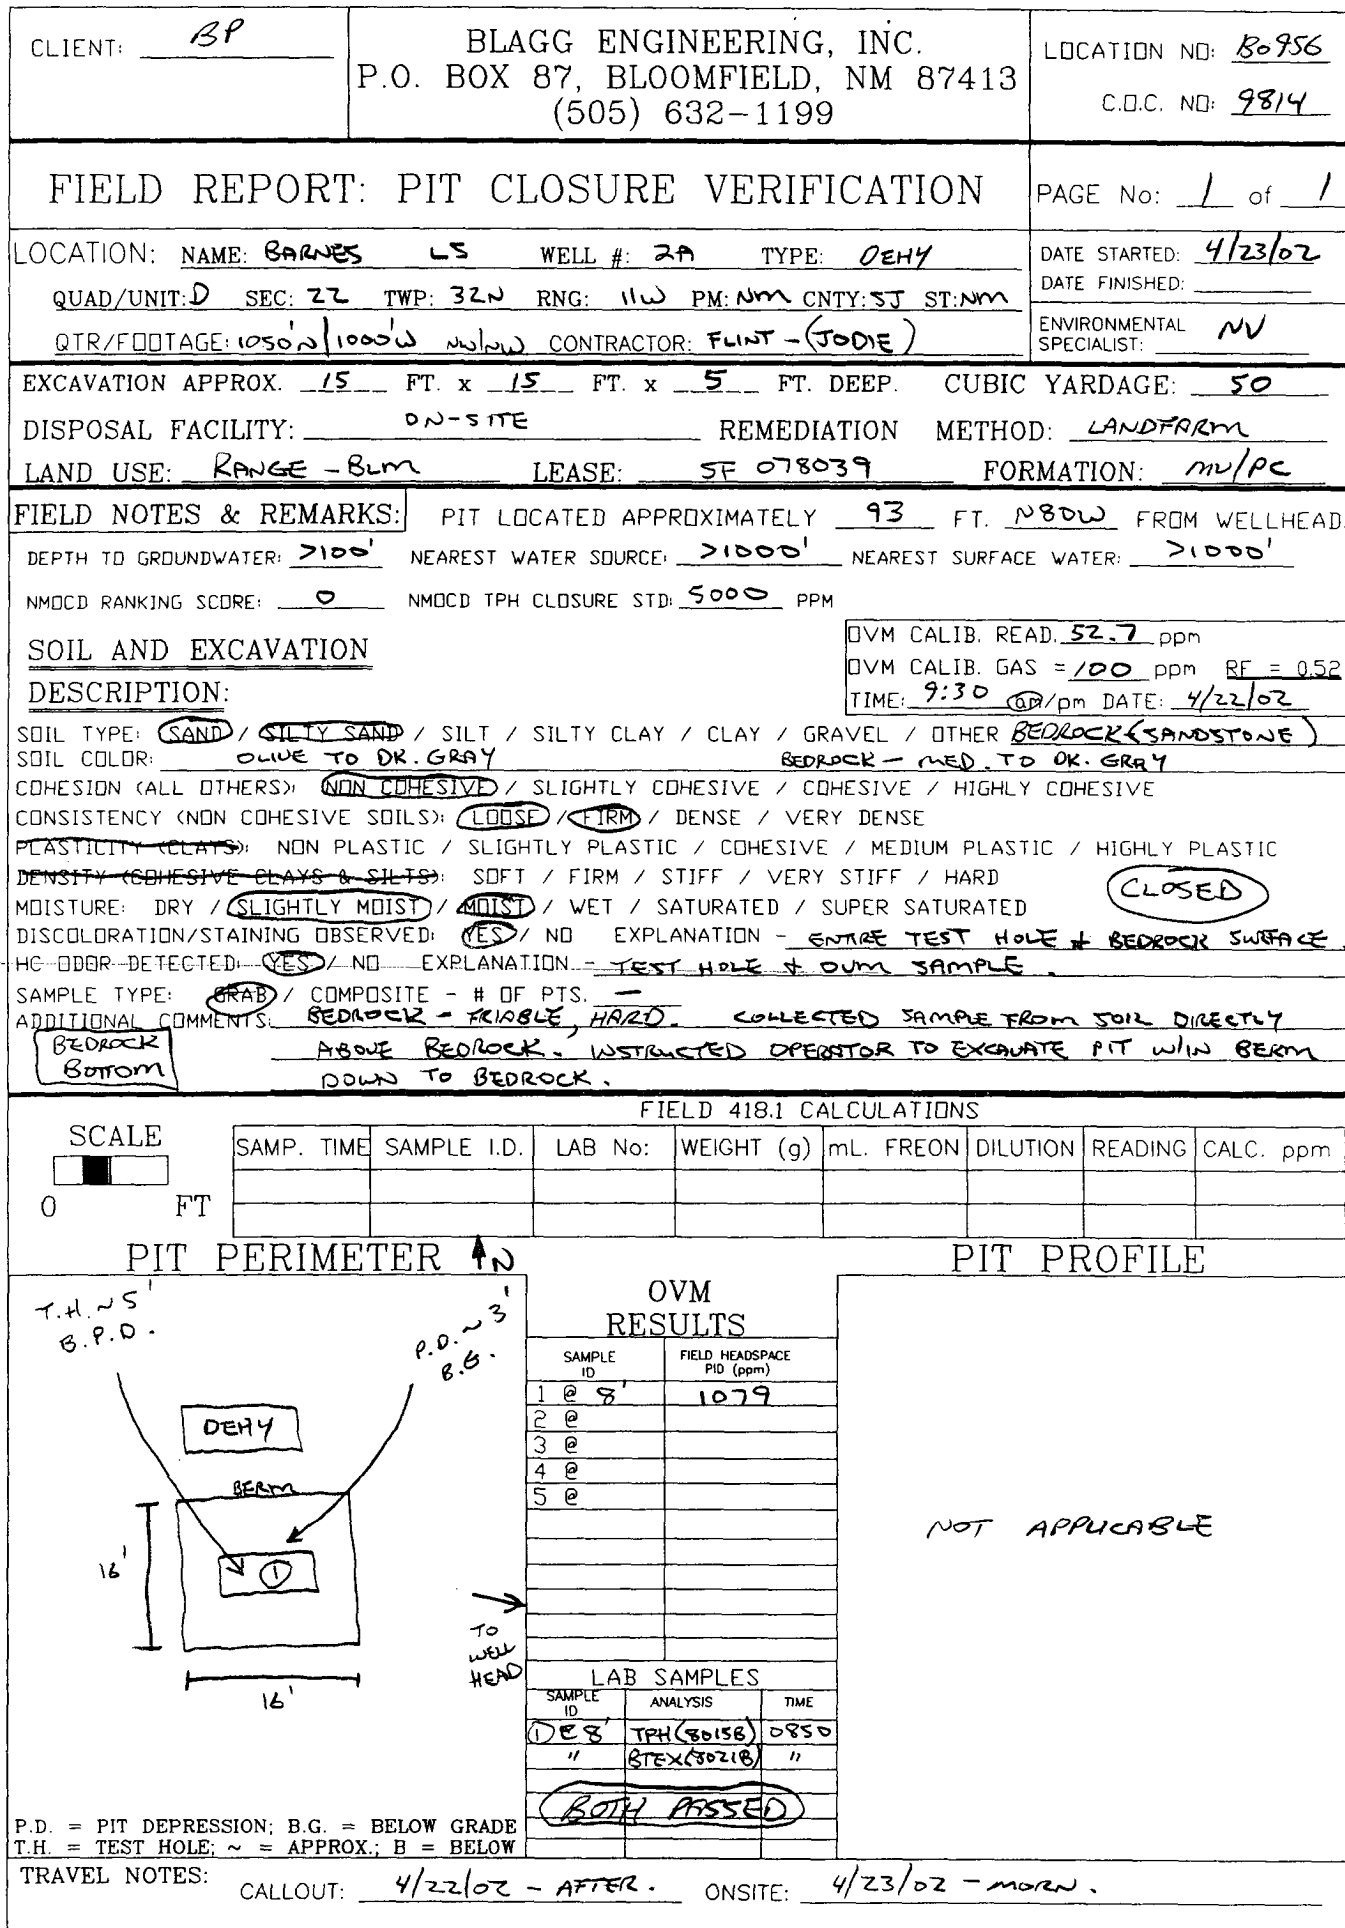 CLIENT: BP
BLAGG ENGINEERING, INC.
P.O. BOX 87, BLOOMFIELD, NM 87413
(505) 632-1199
LOCATION NO: B0956
C.O.C. NO: 9814
FIELD REPORT: PIT CLOSURE VERIFICATION
PAGE No: 1 of 1
LOCATION: NAME: BARNES LS WELL #: 2A TYPE: DEHY
QUAD/UNIT: D SEC: 22 TWP: 32N RNG: 11W PM: NM CNTY: SJ ST: NM
QTR/FOOTAGE: 1050'N/1000'W NW/NW CONTRACTOR: FLINT - (JODIE)
DATE STARTED: 4/23/02
DATE FINISHED:
ENVIRONMENTAL SPECIALIST: NV
EXCAVATION APPROX. 15 FT. x 15 FT. x 5 FT. DEEP. CUBIC YARDAGE: 50
DISPOSAL FACILITY: ON-SITE REMEDIATION METHOD: LANDFARM
LAND USE: RANGE - BLM LEASE: SF 078039 FORMATION: MV/PC
FIELD NOTES & REMARKS: PIT LOCATED APPROXIMATELY 93 FT. N80W FROM WELLHEAD.
DEPTH TO GROUNDWATER: >100' NEAREST WATER SOURCE: >1000' NEAREST SURFACE WATER: >1000'
NMOCD RANKING SCORE: 0 NMOCD TPH CLOSURE STD: 5000 PPM
SOIL AND EXCAVATION
DESCRIPTION:
OVM CALIB. READ. 52.7 ppm
OVM CALIB. GAS = 100 ppm RF = 0.52
TIME: 9:30 am/pm DATE: 4/22/02
SOIL TYPE: SAND / SILTY SAND / SILT / SILTY CLAY / CLAY / GRAVEL / OTHER BEDROCK (SANDSTONE)
SOIL COLOR: OLIVE TO DK. GRAY BEDROCK - MED. TO DK. GRAY
COHESION (ALL OTHERS): NON COHESIVE / SLIGHTLY COHESIVE / COHESIVE / HIGHLY COHESIVE
CONSISTENCY (NON COHESIVE SOILS): LOOSE / FIRM / DENSE / VERY DENSE
PLASTICITY (CLAYS): NON PLASTIC / SLIGHTLY PLASTIC / COHESIVE / MEDIUM PLASTIC / HIGHLY PLASTIC
DENSITY (COHESIVE CLAYS & SILTS): SOFT / FIRM / STIFF / VERY STIFF / HARD
CLOSED
MOISTURE: DRY / SLIGHTLY MOIST / MOIST / WET / SATURATED / SUPER SATURATED
DISCOLORATION/STAINING OBSERVED: YES / NO EXPLANATION - ENTIRE TEST HOLE & BEDROCK SURFACE.
HC ODOR DETECTED: YES / NO EXPLANATION - TEST HOLE & OVM SAMPLE.
SAMPLE TYPE: GRAB / COMPOSITE - # OF PTS. —
ADDITIONAL COMMENTS: BEDROCK - FRIABLE, HARD. COLLECTED SAMPLE FROM SOIL DIRECTLY
ABOVE BEDROCK. INSTRUCTED OPERATOR TO EXCAVATE PIT W/IN BERM
DOWN TO BEDROCK.
BEDROCK
BOTTOM
FIELD 418.1 CALCULATIONS
SCALE
0 FT
SAMP. TIME SAMPLE I.D. LAB No: WEIGHT (g) mL. FREON DILUTION READING CALC. ppm
PIT PERIMETER N
PIT PROFILE
T.H. ~ 5'
B.P.D.
P.D. ~ 3'
B.G.
DEHY
BERM
16'
1
16'
TO
WELL
HEAD
OVM
RESULTS
SAMPLE ID FIELD HEADSPACE PID (ppm)
1 @ 8' 1079
2 @
3 @
4 @
5 @
NOT APPLICABLE
LAB SAMPLES
SAMPLE ID ANALYSIS TIME
1 @ 8' TPH (8015B) 0850
" BTEX (8021B) "
BOTH PASSED
P.D. = PIT DEPRESSION; B.G. = BELOW GRADE
T.H. = TEST HOLE; ~ = APPROX.; B = BELOW
TRAVEL NOTES: CALLOUT: 4/22/02 - AFTER. ONSITE: 4/23/02 - MORN.